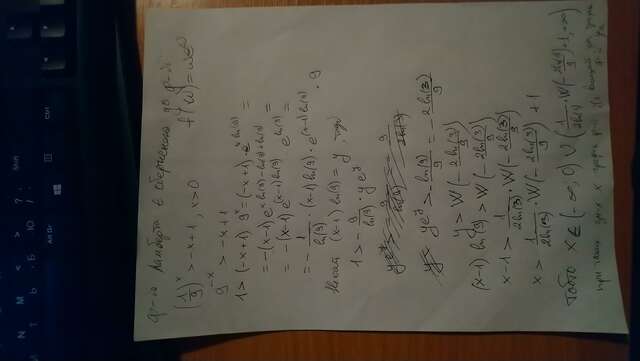 ф-ія Ламберта є оберненою до ф-ії
f(w) = we^w
(1/9)^x > -x+1, x>0
9^-x > -x+1
1 > (-x+1) 9^x = (-x+1)·e^x ln(9) =
= -(x-1) e^x ln(9) - ln(9) + ln(9) =
= -(x-1) e^(x-1) ln(9) · e^ln(9) =
= - 1/ln(9) · (x-1) ln(9) · e^(x-1) ln(9) · 9
(x-1) ln(9) = y, тоді
1 > - 9/ln(9) · y e^y
y e^y > - ln(9)/9 = - 2ln(3)/9
y > W(- 2ln(3)/9)
(x-1) ln(9) > W(- 2ln(3)/9)
x-1 > 1/2ln(3) · W(- 2ln(3)/9)
x > 1/2ln(3) · W(- 2ln(3)/9) + 1
Тобто x ∈ (-∞, 0) ∪ (1/2ln(3) · W(- 2ln(3)/9) + 1, +∞)
при таких x графік